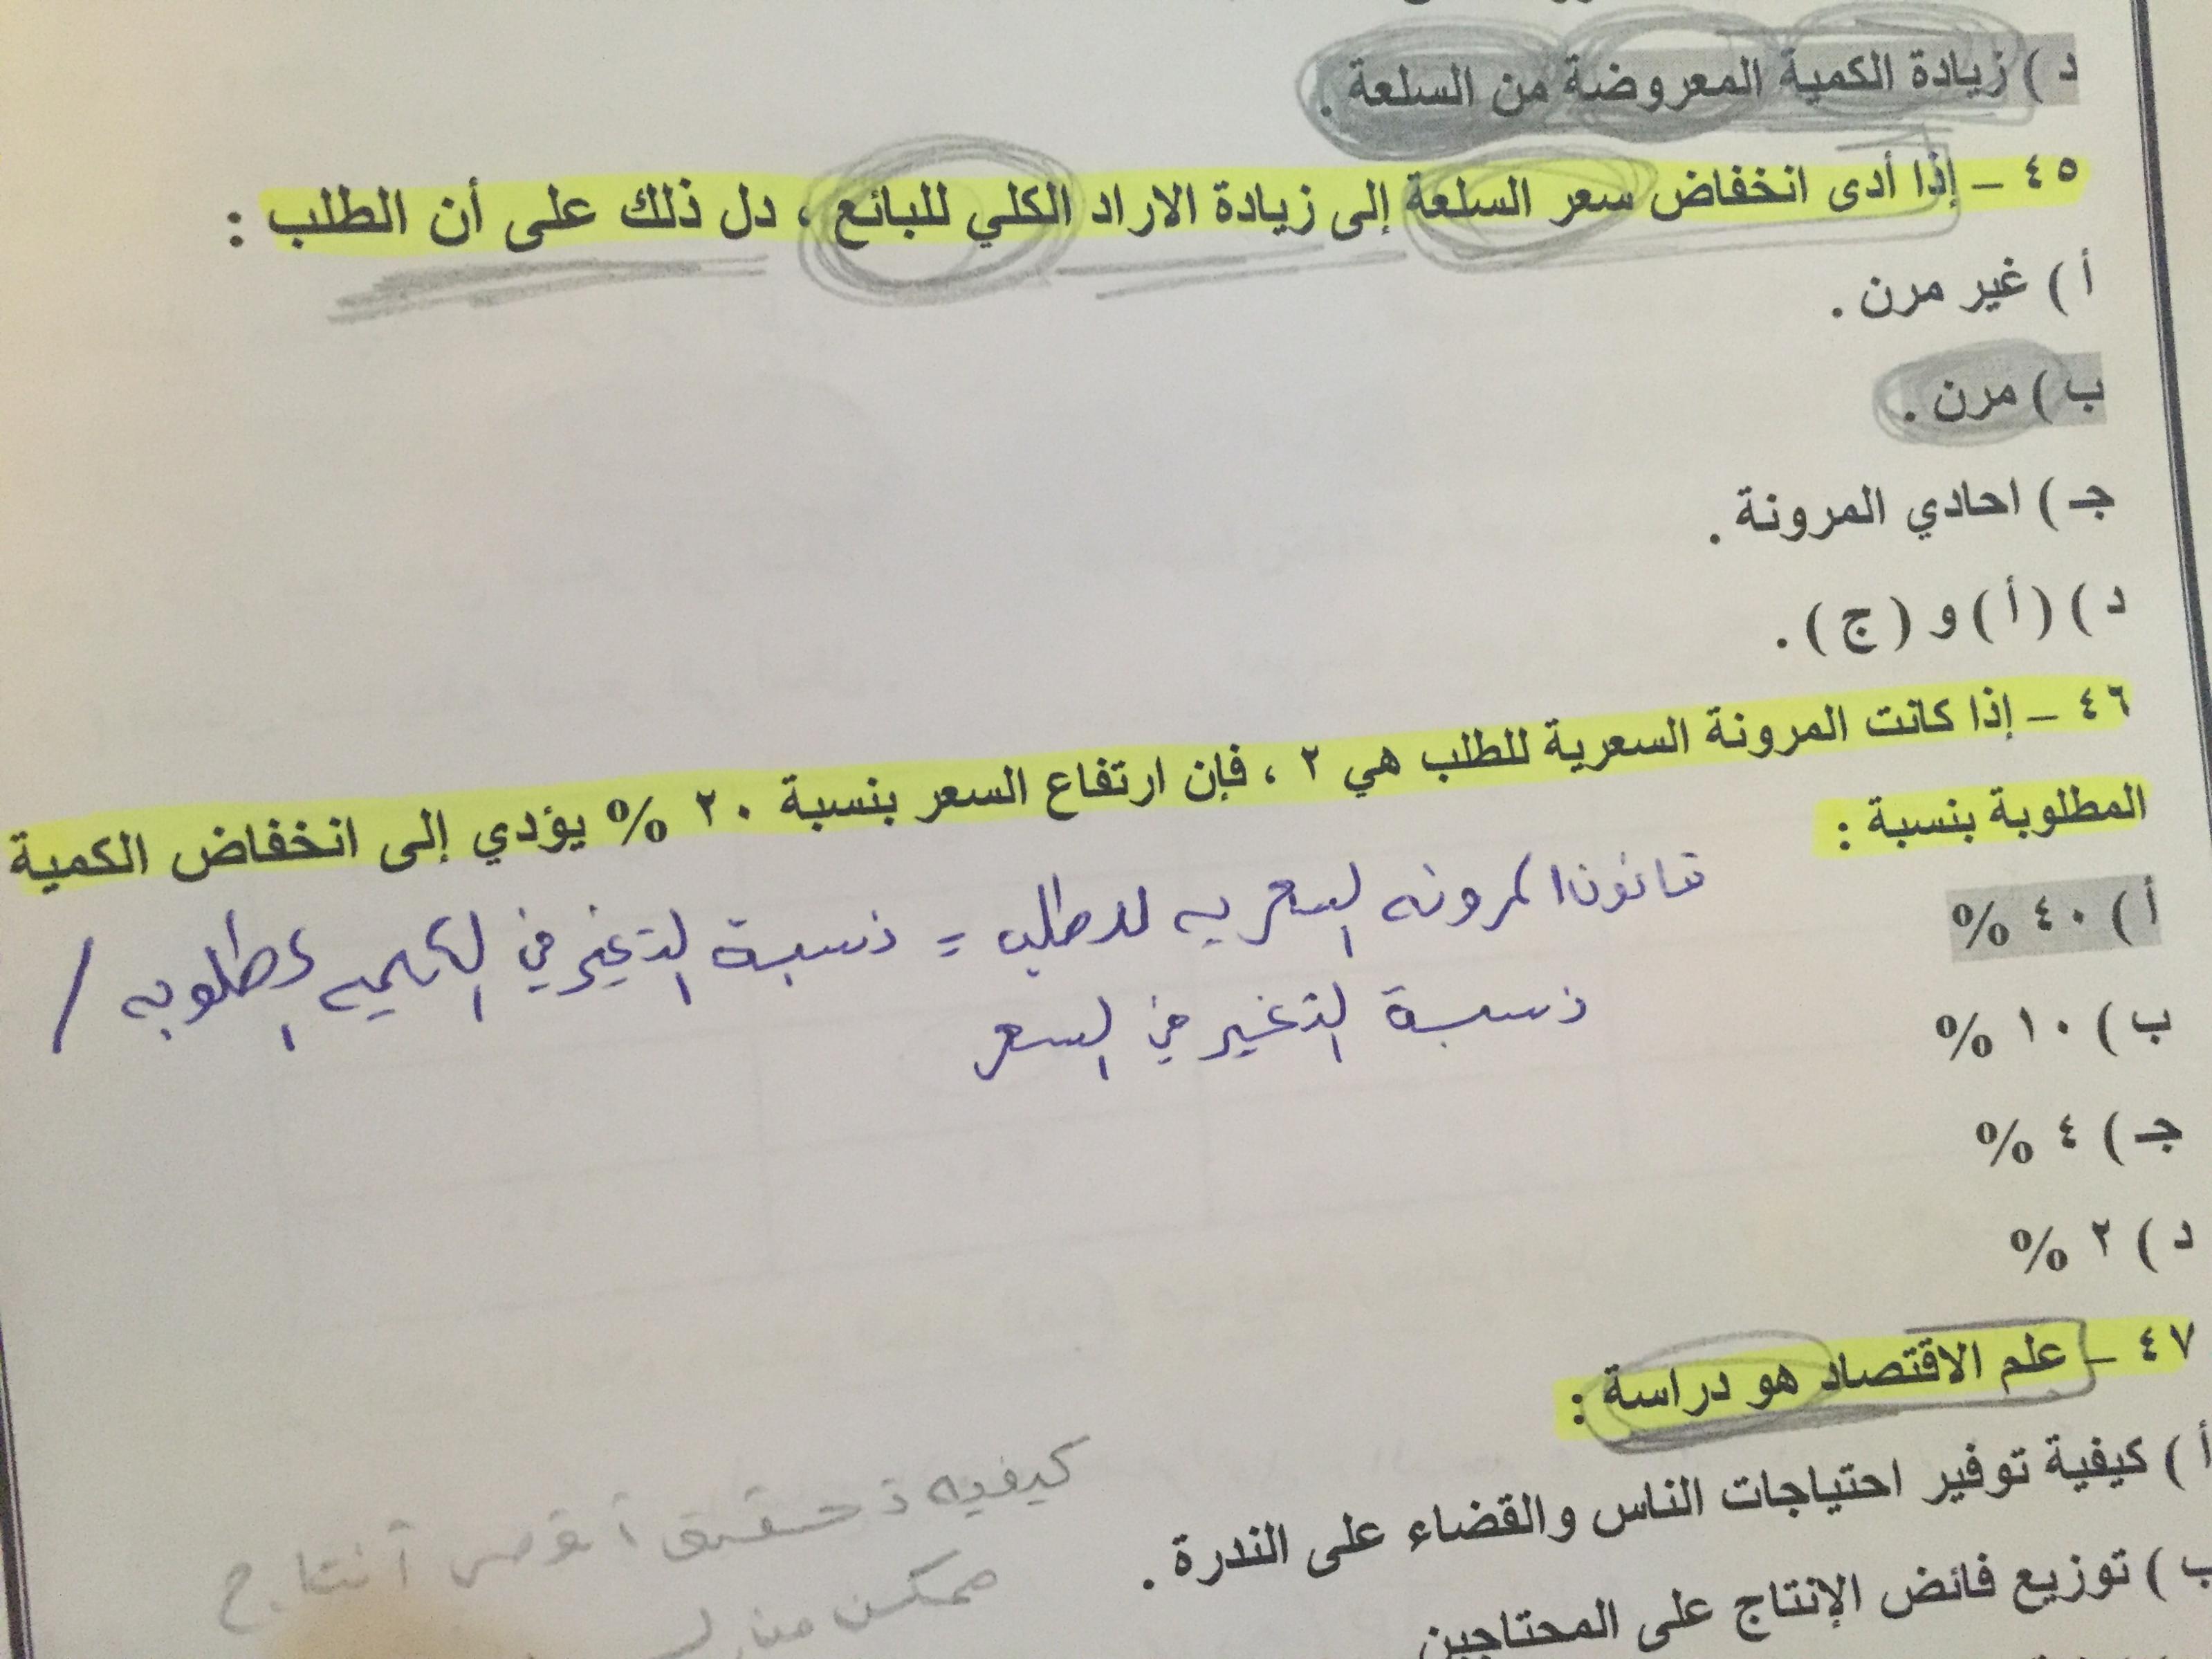 د ) زيادة الكمية المعروضة من السلعة .
٤٥ – إذا أدى انخفاض سعر السلعة إلى زيادة الاراد الكلي للبائع ، دل ذلك على أن الطلب :
أ ) غير مرن .
ب ) مرن .
جـ ) احادي المرونة .
د ) ( أ ) و ( ج ) .
٤٦ – إذا كانت المرونة السعرية للطلب هي ٢ ، فإن ارتفاع السعر بنسبة ٢٠ % يؤدي إلى انخفاض الكمية
المطلوبة بنسبة :
أ ) ٤٠ %
قانون المرونه السعريه للطلب = نسبة التغير في الكميه المطلوبه /
نسبة التغير في السعر
ب ) ١٠ %
جـ ) ٤ %
د ) ٢ %
٤٧ – علم الاقتصاد هو دراسة :
أ ) كيفية توفير احتياجات الناس والقضاء على الندرة .
كيفيه تحقيق أقصى أنتاج
ممكن من
ب ) توزيع فائض الإنتاج على المحتاجين